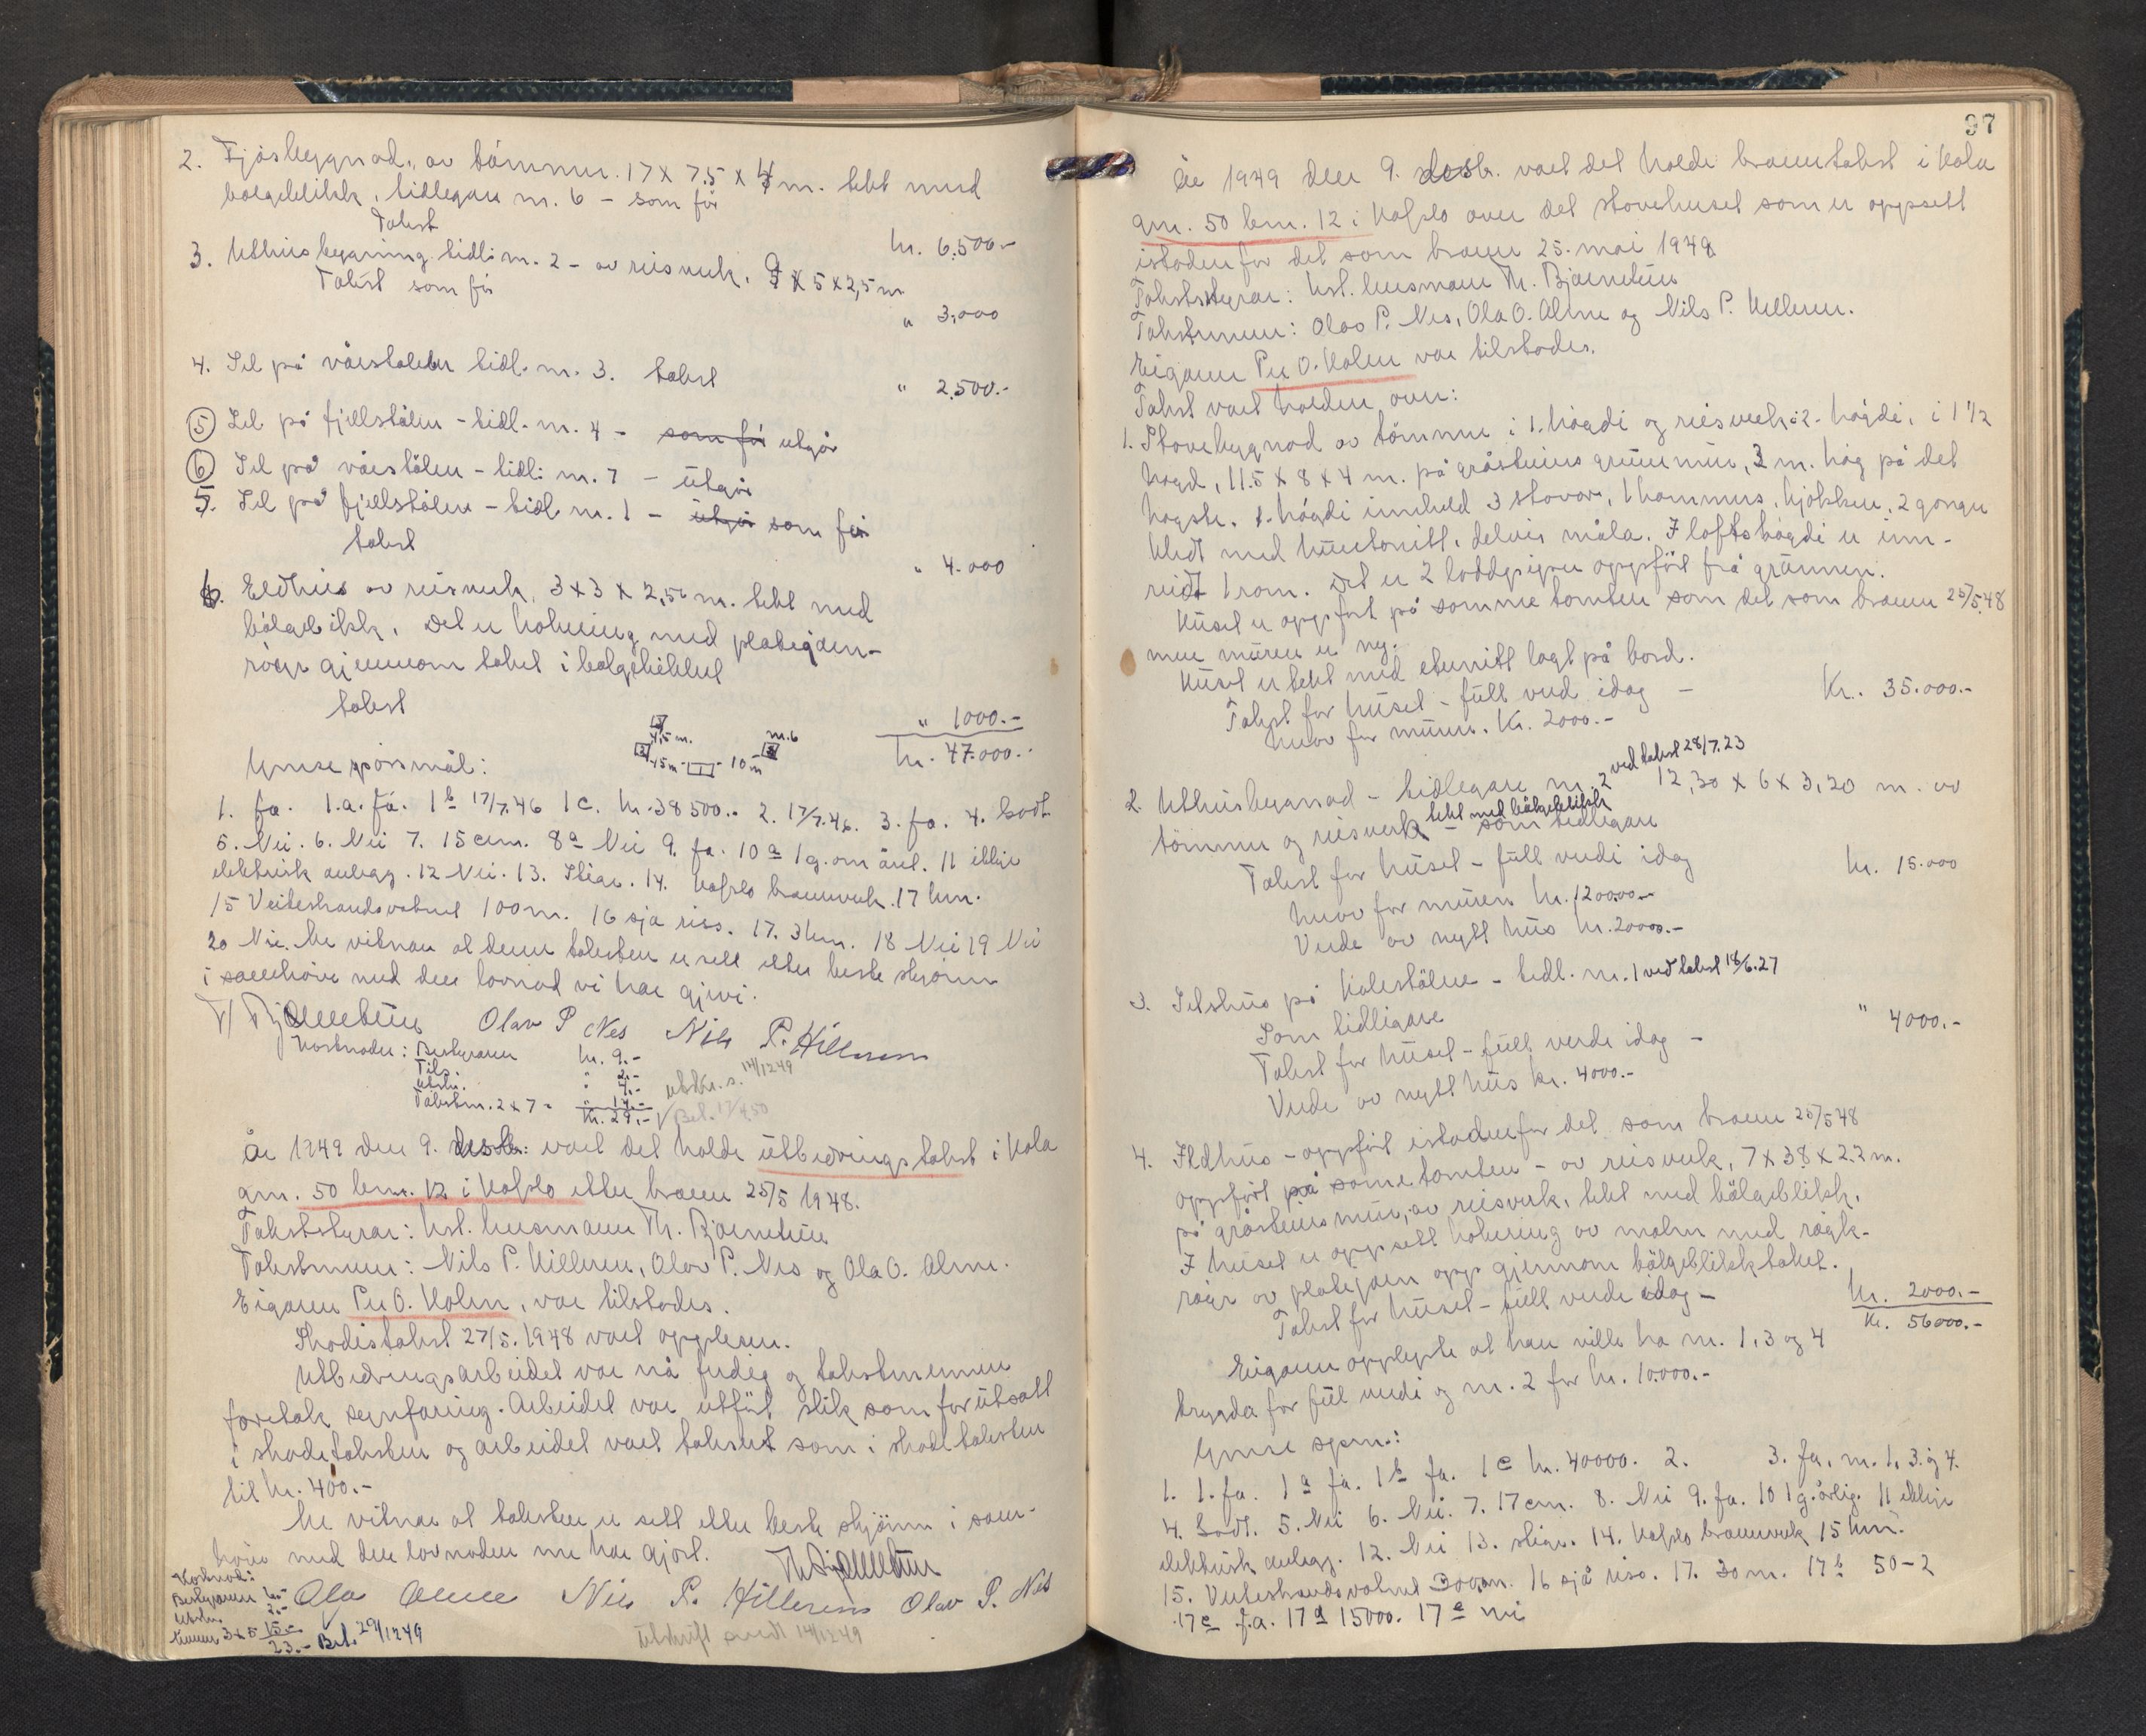 2. Fjøsbygnad, av tømmer. 17 x 7.5 x 4 m. tekt med
bølgeblikk, tidlegare nr. 6 - som før
Takst
kr. 6.500.-
3. Uthusbygning tidl: nr. 2 - av reisverk. 9 x 5 x 2,5 m
Takst som før
" 3.000
4. Sel på vårstølen tidl. nr. 3. takst
" 2.500.-
5 Sel på fjellstølen - tidl. nr. 4 - som før utgår
6 Sel på vårstølen - tidl: nr. 7 - utgår
5. Sel på fjellstølen - tidl. nr. 1 - utgår som før
takst
" 4.000
6. Eldhus av reisverk, 3 x 3 x 2,50 m. tekt med
bølgeblikk. Det er kokering med platejarn-
røyr gjennom taket i bølgeblikket
takst
" 1000.-
kr. 47.000.-
4,5 m. nr. 6
45 m 10 m
Ymse spørsmål:
1. Ja. 1.a. Ja. 1b 17/7.46 1c. kr. 38500.- 2. 17/7.46. 3. Ja. 4. Godt
5. Nei. 6. Nei 7. 15 cm. 8a Nei 9. Ja. 10a 1 g. om året. 11 ikkje
elektrisk anlegg. 12 Nei. 13. Stige. 14. Hafslo brannverk. 17 km.
15 Veitestrandsvatnet 100 m. 16 sjå riss. 17. 3 km. 18 Nei 19 Nei
20 Nei. Me vitnar at denne taksten er sett etter beste skjønn
i samhøve med den lovnad vi har gjevi.
Th Bjærnetun Olav P Nes Nils P. Hillerenn
Kostnader: Bestyraren kr. 9.-
Tils. " 2.-
Utskr. " 4.-
Takstm. 2 x 7 = " 14.-
kr. 29.-
utskr. s. 14/12 49
Bet. 17/4 50
År 1949 den 9. desbr. vart det halde utbedringstakst i Kola
gnr. 50 bnr. 12 i Hafslo etter brann 25/5 1948.
Takststyrar: kst. lensmann Th. Bjærnetun
Takstmenn: Nils P. Hilleren, Olav P. Nes og Ola O. Alme.
Eigaren Per O. Kolen, var tilstades.
Skadetakst 27/5. 1948 vart opplesen.
Utbedringsarbeidet var nå ferdig og takstmennene
foretok synfaring. Arbeidet var utført slik som forutsatt
i skadetaksten og arbeidet vart taksert som i skadetaksten
til kr. 400.-
Me vitnar at taksten er sett etter beste skjønn i sam-
høve med den lovnaden me har gjort.
Th Bjærnetun
Ola Alme Nils P. Hillerenn Olav P. Nes
Kostnad:
Bestyraren 6.-
Utskr. 2.-
Menn 3 x 5 15.-
23.- Bet. 29/12 49
Utskrift sendt 14/12 49
97
År 1949 den 9. desbr. vart det halde branntakst i Kola
gnr. 50 bnr. 12 i Hafslo over det stovehuset som er oppsett
istaden for det som brann 25. mai 1948
Takststyrar: kst. lensmann Th. Bjærnetun
Takstmenn: Olav P. Nes, Ola O. Alme og Nils P. Hilleren.
Eigaren Per O. Kolen var tilstades.
Takst vart halden over:
1. Stovebygnad av tømmer i 1. høgdi og reisverk i 2. høgdi, i 1 1/2
høgd, 11.5 x 8 x 4 m. på gråsteins grunnmur, 2 m. høg på det
høgste. 1. høgdi inneheld 3 stover, 1 kammers, kjøkken, 2 gonger
kledt med huntonitt, delvis måla. I loftshøgdi er inn-
reidt 1 rom. Det er 2 loddpiper oppført frå grunnen.
Huset er oppført på somme tomten som det som brann 25/5.48
men muren er ny.
Huset er tekt med eternitt lagt på bord.
Takst for huset - full verd idag - Kr. 35.000.-
herav for muren. Kr. 2000.-
2. Uthusbygnad - tidlegare nr. 2 ved takst 28/7.23 12,30 x 6 x 3,20 m. av
tømmer og reisverk tekt med bølgeblikk - som tidlegare
Takst for huset - full verdi idag kr. 15.000
herav for muren kr. 12000.-
Verde av nytt hus kr. 20000.-
3. Selshus på Kolestølen - tidl. nr. 1 ved takst 18/6.27
Som tidligare
Takst for huset - full verde idag - " 4000.-
Verde av nytt hus kr. 4000.-
4. Eldhus - oppført istaden for det som brann 25/5 48
oppført på same tomten - av reisverk, 7 x 3.8 x 2.2 m.
på gråsteinsmur, av reisverk, tekt med bølgeblikk.
I huset er oppsett kokering av malm med røyk-
røyr av platejarn opp gjennom bølgeblikktaket.
Takst for huset - full verde idag - kr. 2000.-
Kr. 56000.-
Eigaren opplyste at han ville ha nr. 1, 3 og 4
trygda for full verdi og nr. 2 for kr. 10.000.-
Ymse spm.:
1. 1. Ja. 1a Ja. 1b Ja. 1c kr. 40000. 2. 3. Ja, nr. 1, 3 og 4.
4. Godt. 5. Nei 6. Nei. 7. 17 cm. 8. Nei 9. Ja. 10 1 g. årlig. 11 ikkje
elektrisk anlegg. 12. Nei 13. stige. 14. Hafslo brannverk 15 km.
15. Veitestrandsvatnet 300 m. 16 sjå riss. 17. 30 m. 17b 50-2
17c Ja. 17d 15000. 17e nei